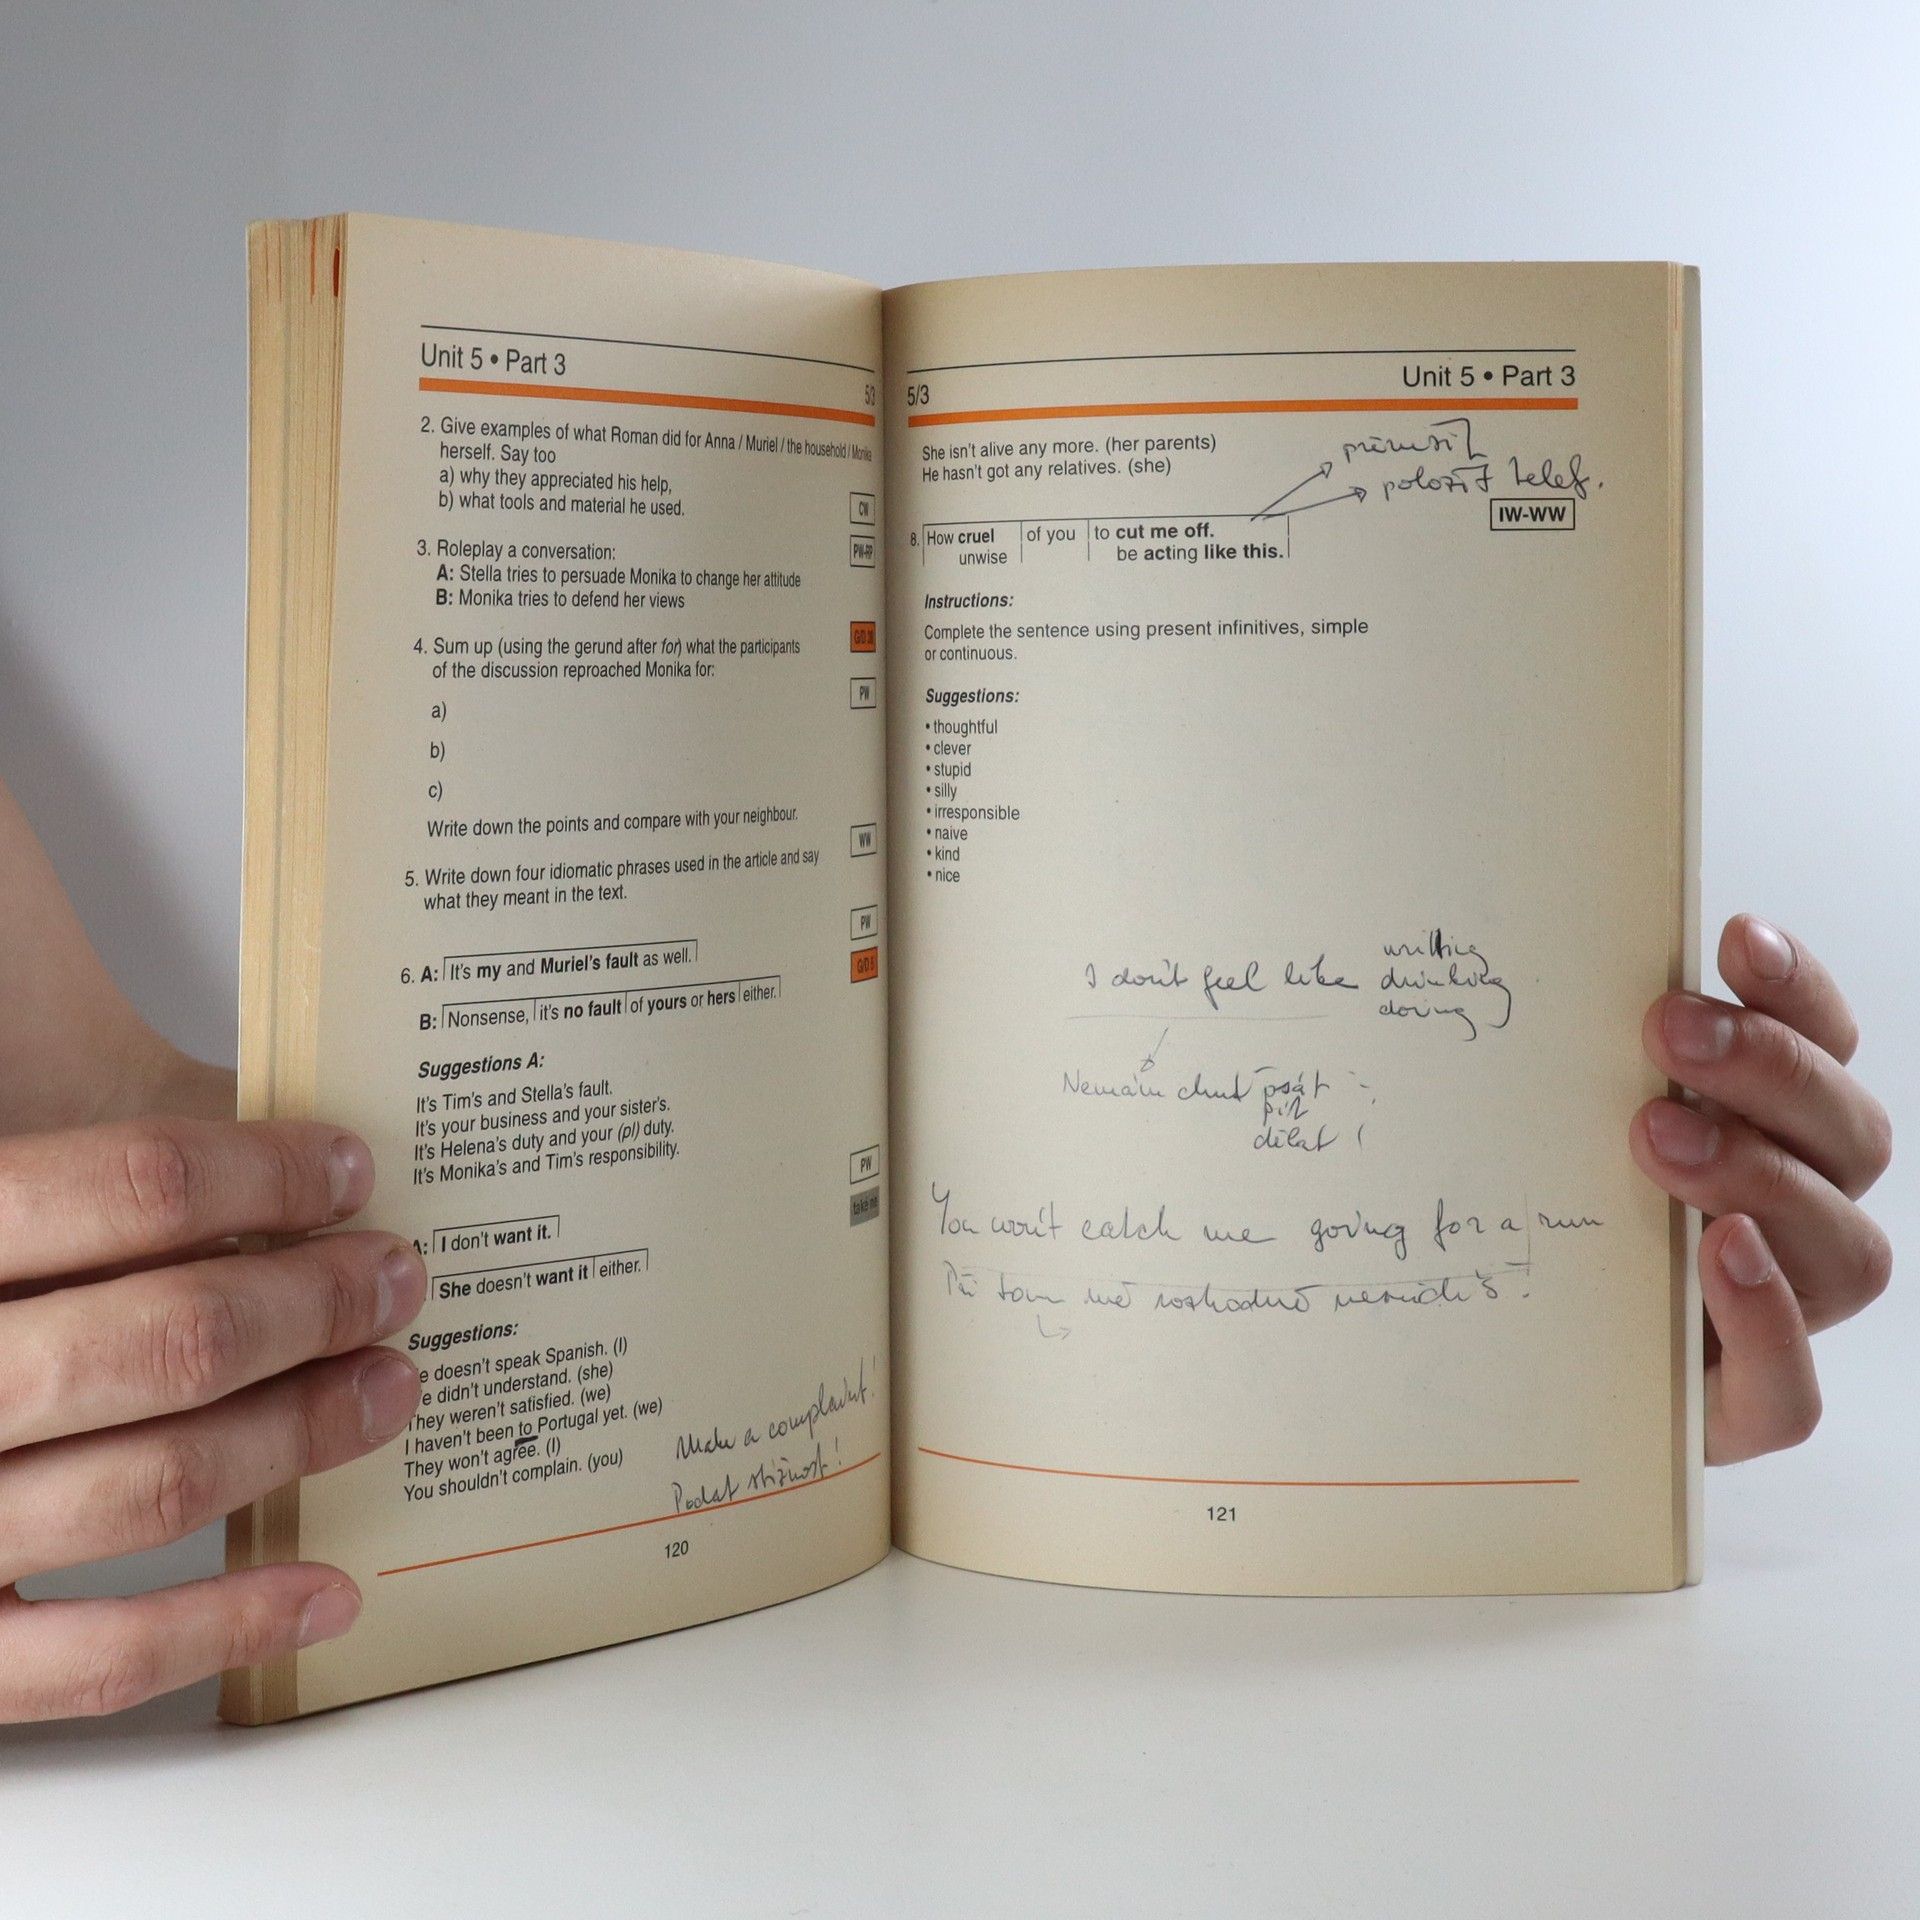 Unit 5 • Part 3
5/3
2. Give examples of what Roman did for Anna / Muriel / the household / Monika
herself. Say too
a) why they appreciated his help,
b) what tools and material he used.
CW
3. Roleplay a conversation:
PW-RP
A: Stella tries to persuade Monika to change her attitude
B: Monika tries to defend her views
4. Sum up (using the gerund after for) what the participants
of the discussion reproached Monika for:
PW
a)
b)
c)
Write down the points and compare with your neighbour.
WW
5. Write down four idiomatic phrases used in the article and say
what they meant in the text.
PW
6. A: It's my and Muriel's fault as well.
G/D 5
B: Nonsense, it's no fault of yours or hers either.
Suggestions A:
It's Tim's and Stella's fault.
It's your business and your sister's.
It's Helena's duty and your (pl) duty.
It's Monika's and Tim's responsibility.
PW
A: I don't want it.
She doesn't want it either.
Suggestions:
e doesn't speak Spanish. (I)
e didn't understand. (she)
They weren't satisfied. (we)
I haven't been to Portugal yet. (we)
They won't agree. (I)
You shouldn't complain. (you)
Make a complaint!
Podat stížnost!
120
5/3
Unit 5 • Part 3
She isn't alive any more. (her parents)
He hasn't got any relatives. (she)
přerušit
položit telef.
IW-WW
8. How cruel of you to cut me off.
unwise be acting like this.
Instructions:
Complete the sentence using present infinitives, simple
or continuous.
Suggestions:
• thoughtful
• clever
• stupid
• silly
• irresponsible
• naive
• kind
• nice
writting
I don't feel like drinking
doing
Nemám chuť psát
pít
dělat
You won't catch me going for a run
Při tom mě rozhodně neuvidíš!
121